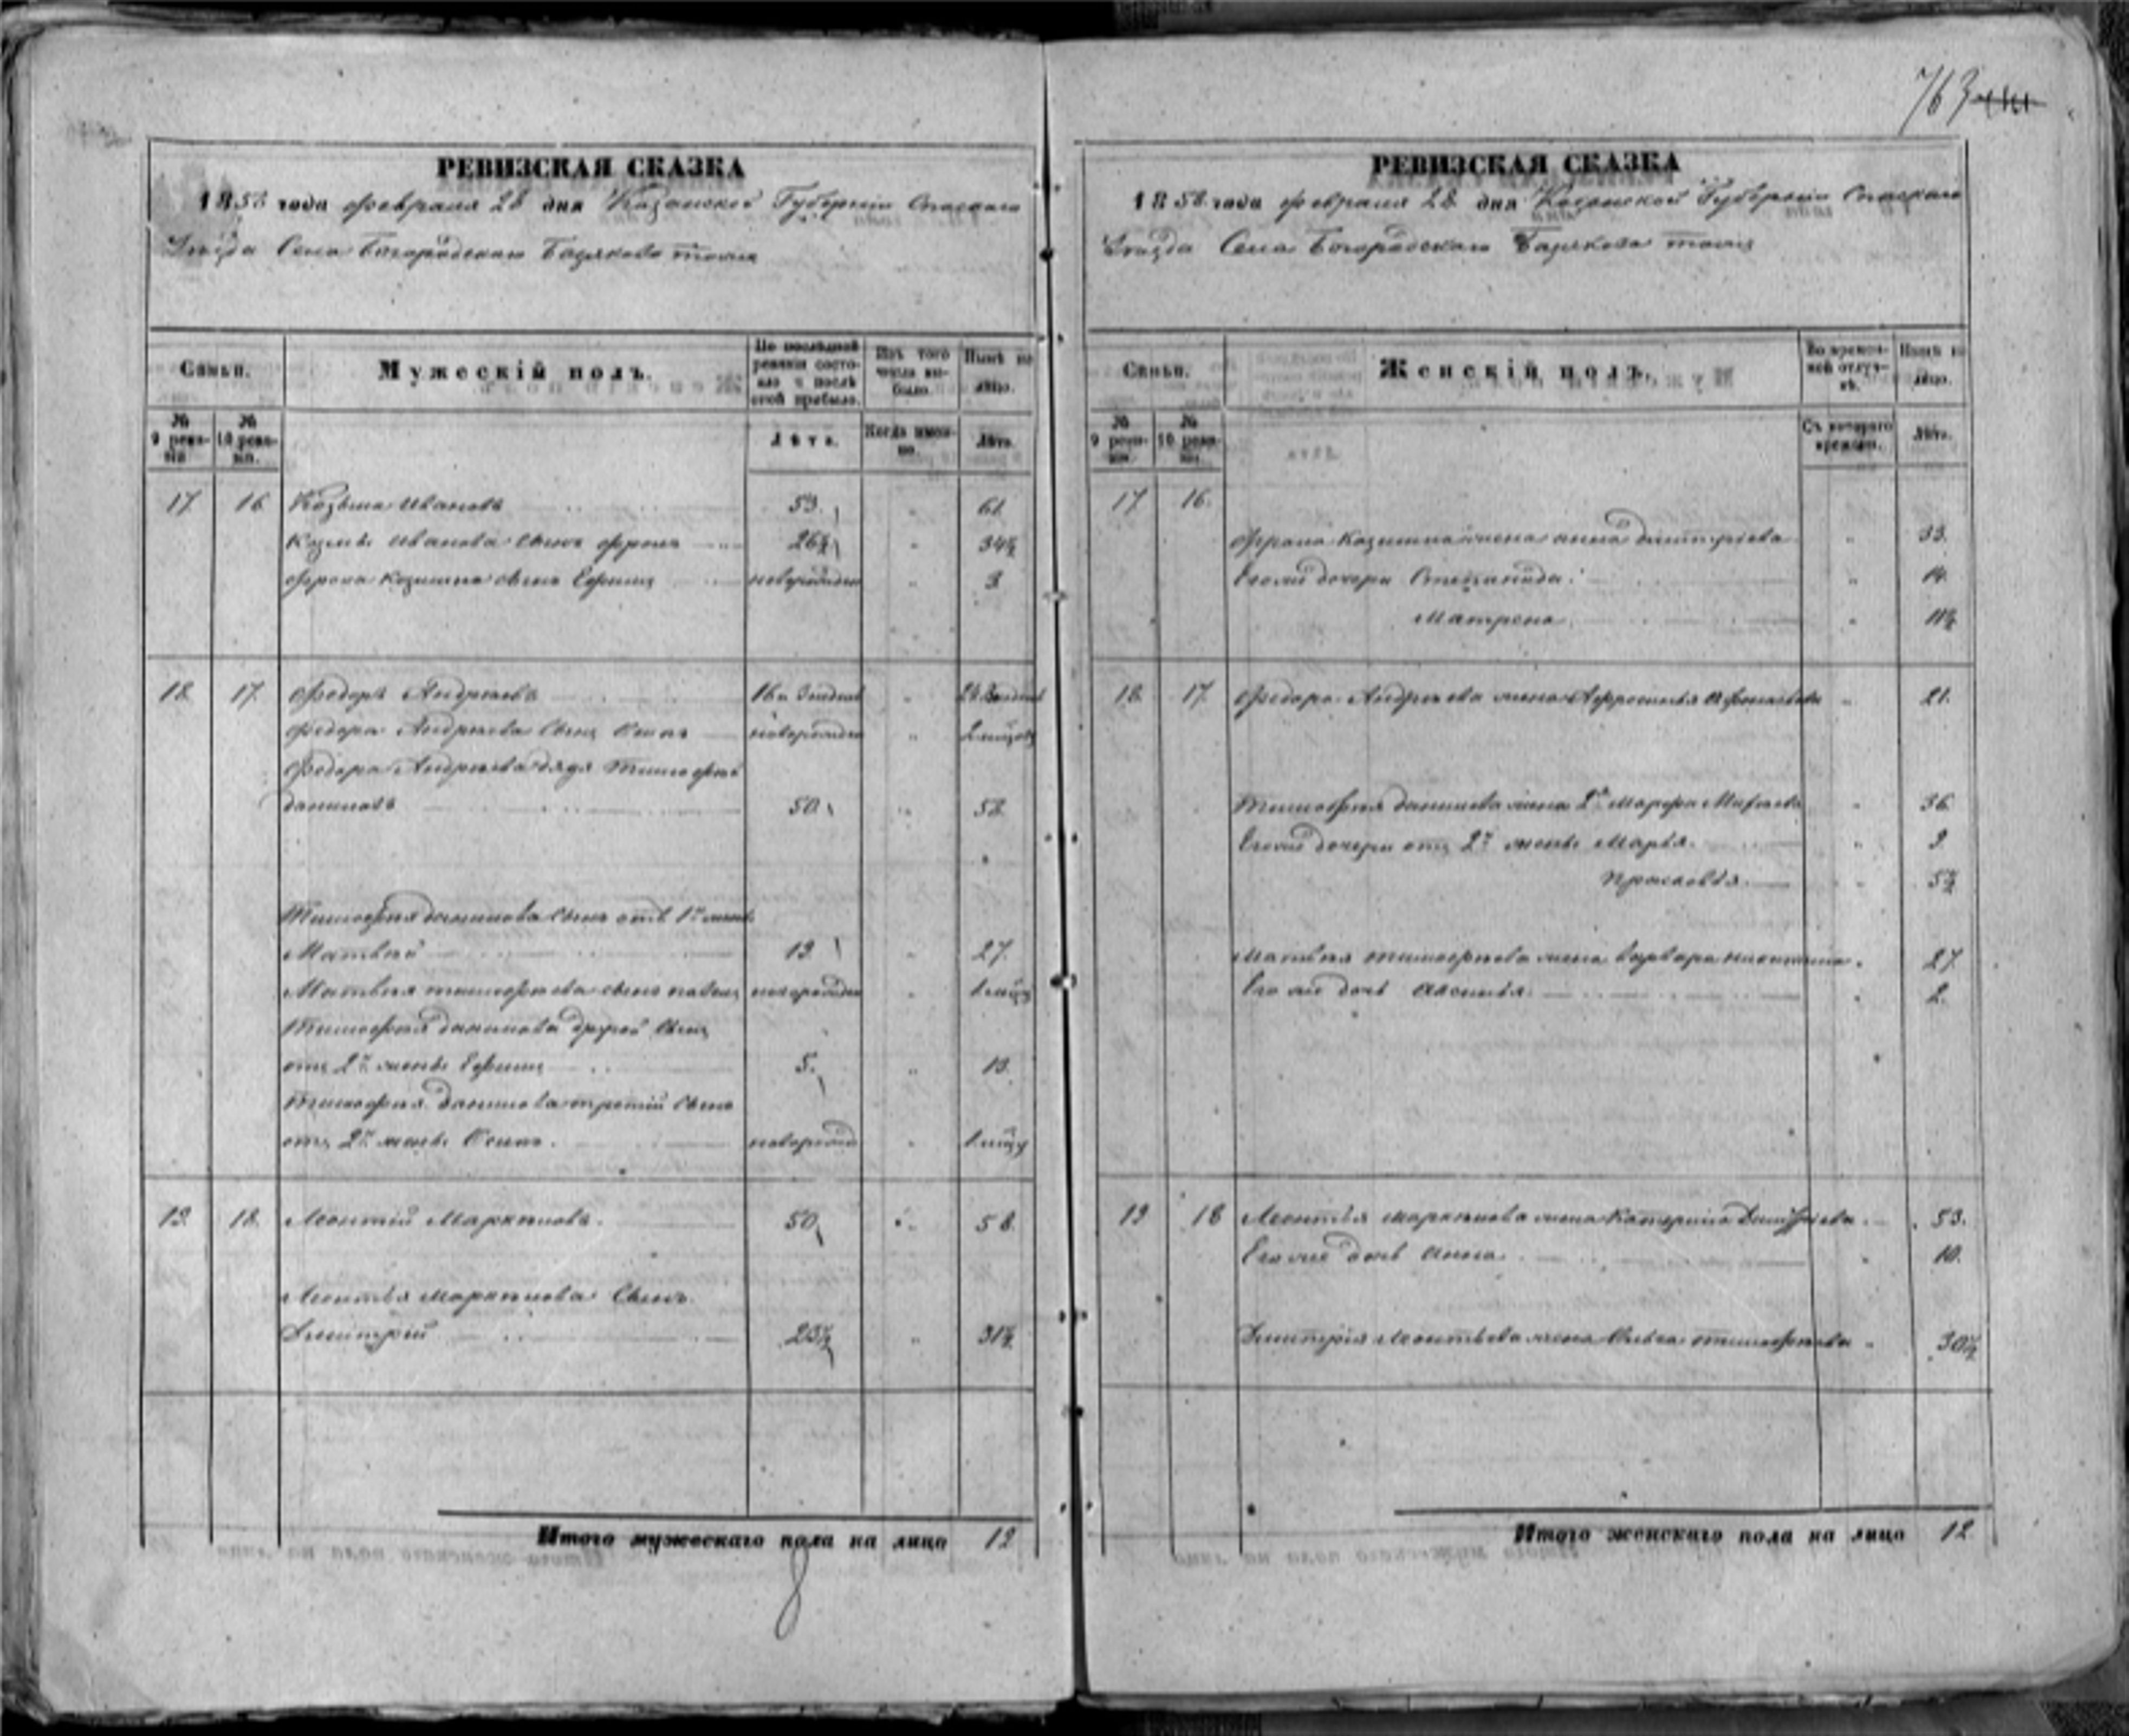 763
РЕВИЗСКАЯ СКАЗКА
1858 года февраля 28 дня Казанской Губернiи Спаскаго
Уѣзда Села Богородскаго Базякова тожъ
Семьи.
Мужескiй полъ.
По послѣдней ревизiи состояло и послѣ оной прибыло.
Изъ того числа выбыло.
Нынѣ на лицо.
№ 9 ревизiи
№ 10 ревизiи.
Лѣта.
Когда именно.
Лѣта.
17 16 Козьма Ивановъ 53. " 61.
Козмы Иванова сынъ Фролъ 26½ " 34½
Фрола Козмина сынъ Ефимъ новорожден " 3.
18. 17. Федоръ Андреевъ "
Федора Андреева сынъ Осипъ новорожден "
Федора Андреева дядя Тимофей
Даниловъ 50. " 58.
Тимофея Данилова сынъ отъ 1й жены
Матвей 19. " 27.
Матвея Тимофеева сынъ Павелъ новорожден "
Тимофея Данилова другой сынъ
отъ 2й жены Ефимъ 5. " 13.
Тимофея Данилова третiй сынъ
отъ 2й жены Осипъ. новорожд "
19. 18. Леонтiй 50 " 58.
Леонтья сынъ
Димитрiй 23½ " 31½
Итого мужескаго пола на лицо 12
РЕВИЗСКАЯ СКАЗКА
1858 года февраля 28 дня Казанской Губернiи Спаскаго
Уѣзда Села Богородскаго Базякова тожъ
Семьи.
Женскiй полъ.
Во временной отлучкѣ.
Нынѣ на лицо.
№ 9 ревизiи.
№ 10 ревизiи.
Съ котораго времени.
Лѣта.
17 16.
Фрола Козмина жена Анна Димитрiева " 33.
Его же дочери Степанида. " 14.
Матрена " 11½
18. 17. Федора Андреева жена " 21.
Тимофея Данилова жена 2я Марфа " 36.
Его же дочери отъ 2й жены Марья. " 9.
Прасковья. " 5½
Матвея Тимофеева жена Варвара Никитина " 27.
Его же дочь Аксинья. " 2.
19 18 Леонтья жена Катерина Димитрiева. 53.
Его же дочь Анна. " 10.
Димитрiя Леонтьева жена Тимофеева " 30½
Итого женскаго пола на лицо 12.